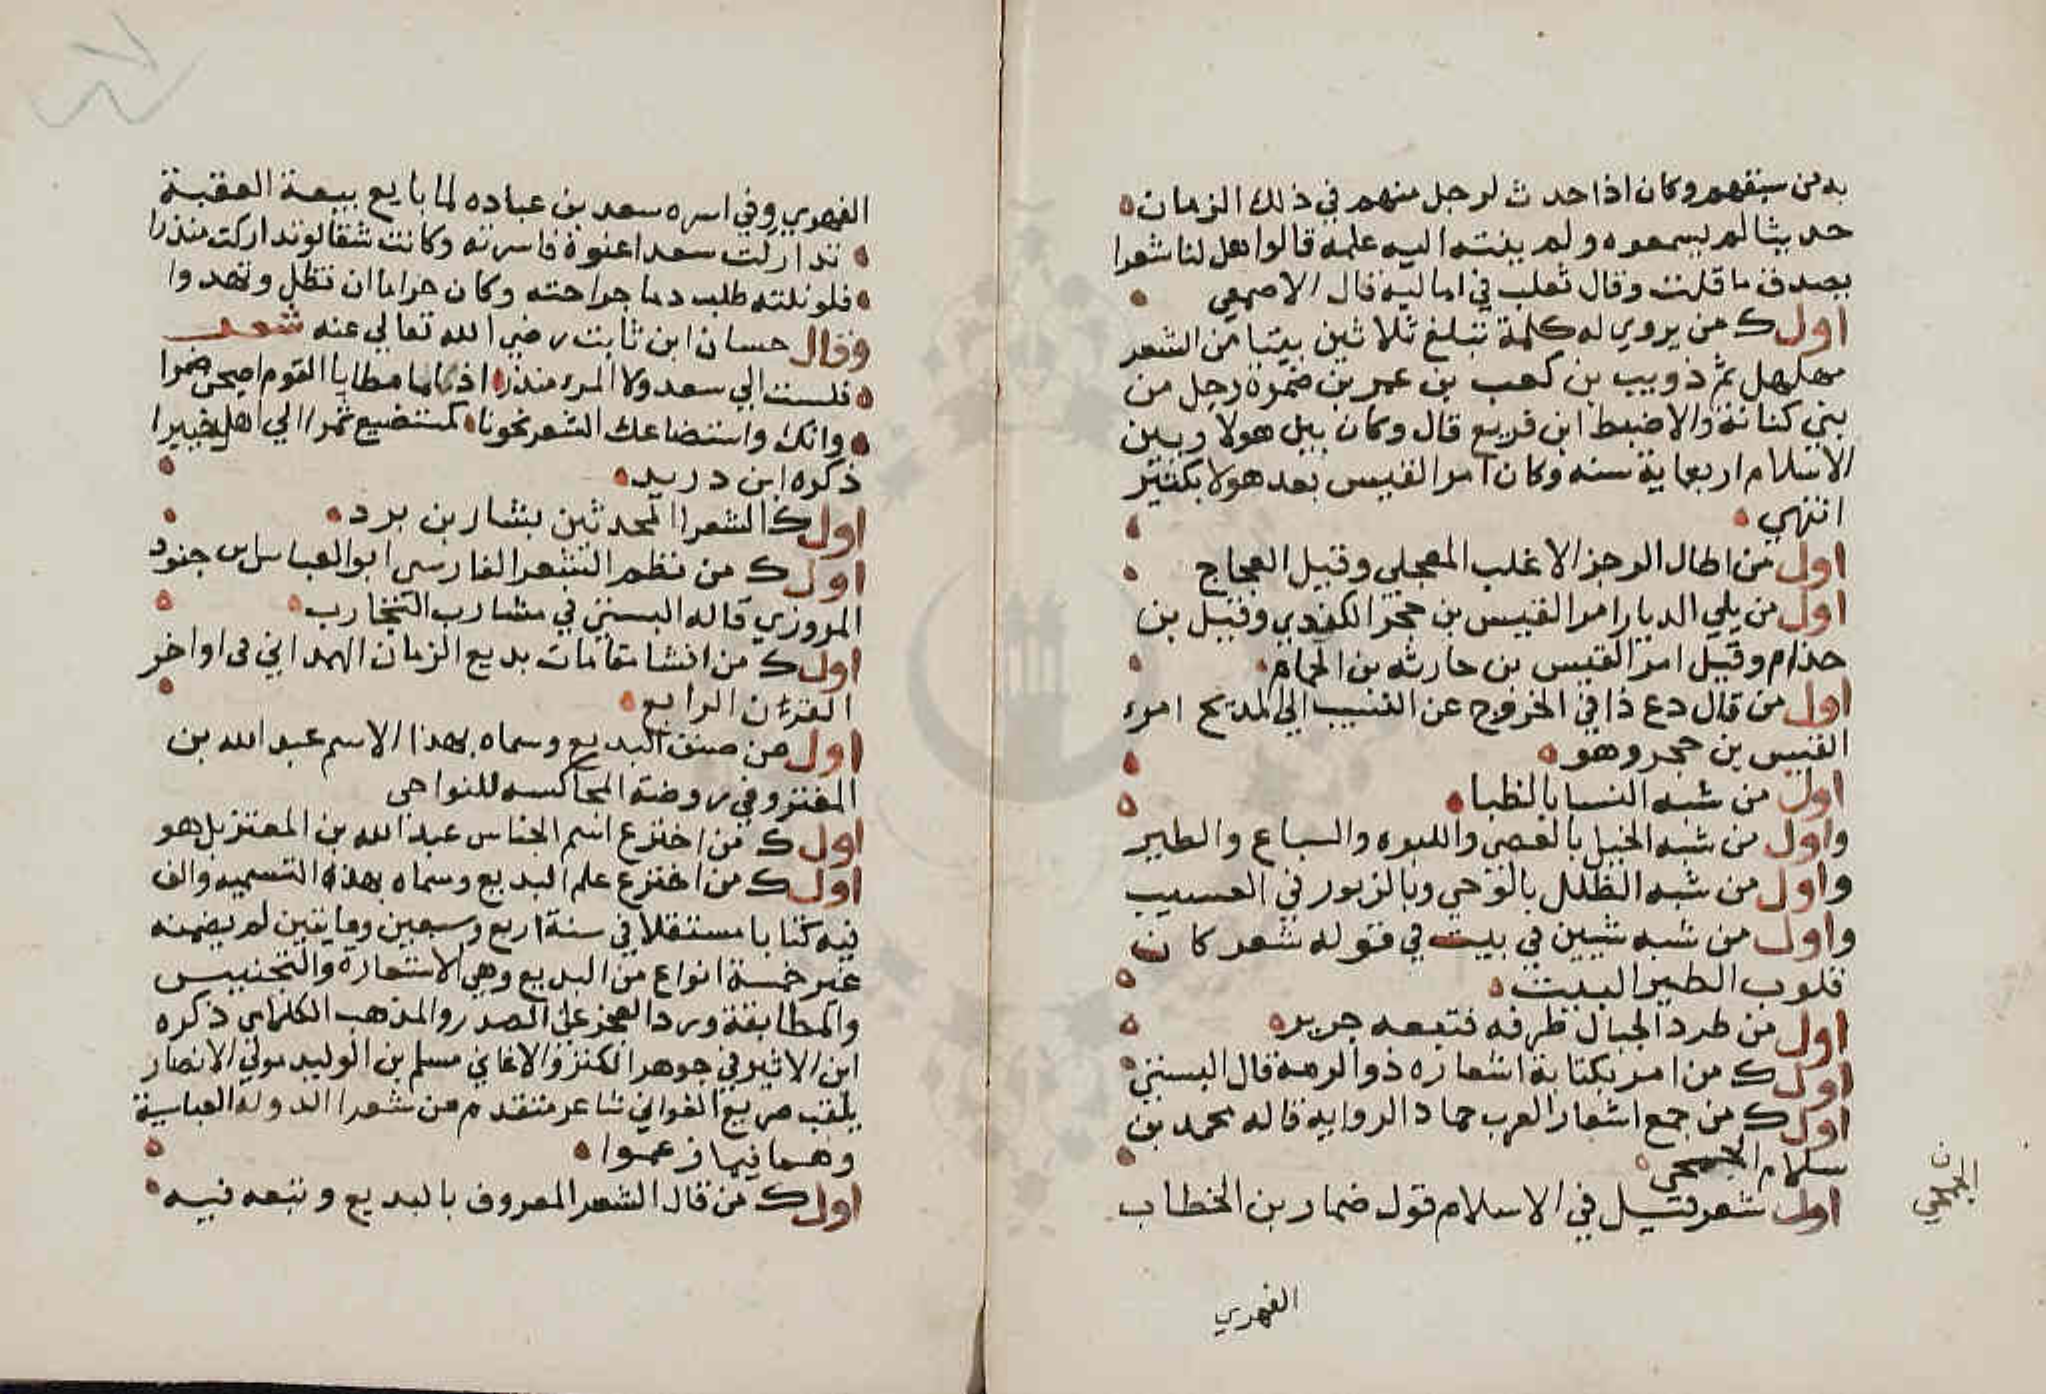 به من سبقهم وكان اذا حدث لرجل منهم في ذلك الزمان
حديثا لم يسمعوه ولم ينته اليه علمه قالوا هل لنا شعرا
يصدق ما قلت وقال ثعلب في اماليه قال الاصمعي
اول من يروي له كلمة تبلغ ثلاثين بيتا من الشعر
مهلهل ثم ذويب بن كعب بن عمر بن ضمرة رجل من
بني كنانة والاضبط ابن قريع قال وكان بين هولا وبين
الاسلام اربعماية سنه وكان امر القيس بعد هولا بكثير
انتهي
اول من اطال الرجز الاغلب العجلي وقيل العجاج
اول من بكي الديار امر القيس بن حجر الكندي وقيل بن
حذام وقيل امر القيس بن حارثه بن الحمام
اول من قال دع ذا في الخروج عن النسيب الي المديح امرء
القيس بن حجر وهو
اول من شبه النسا بالظبا
واول من شبه الخيل بالعصي واللبوه والسباع والطير
واول من شبه الطلل بالوحي وبالزبور في العسيب
واول من شبه شيين في بيت في قوله شعر كان
قلوب الطير البيت
اول من طرد الخيال طرفه فتبعه جرير
اول من امر بكتابة اشعاره ذو الرمة قال البستي
اول من جمع اشعار العرب حماد الروايه قاله محمد بن
سلام الجمحي
اول شعر قيل في الاسلام قول ضمار بن الخطاب
الفهري
الفهري وفي اسره سعد بن عباده لما بايع بيعة العقبة
تداركت سعدا عنوة فاسرته وكانت شفا لو تداركت منذرا
فلو نلته طلبت دما جراحته وكان حراما ان تطل وتهدوا
وقال حسان ابن ثابت رضي الله تعالي عنه شعر
فلست الي سعد ولا المرء منذر اذا ما مطايا القوم اصبحن ضمرا
وانك واستضاعك الشعر نحونا كمستضيع تمرا الي اهل خيبرا
ذكره ابن دريد
اول الشعرا المحدثين بشار بن برد
اول من نظم الشعر الفارسي ابو العباس بن جنود
المروزي قاله البستي في مشارب التجارب
اول من انشا مقامات بديع الزمان الهمداني في اواخر
القرن الرابع
اول من صنف البديع وسماه بهذا الاسم عبد الله بن
المعتز وفي روضة المجالسه للنواجي
اول من اخترع اسم الجناس عبد الله بن المعتز بل هو
اول من اخترع علم البديع وسماه بهذه التسميه والف
فيه كتابا مستقلا في سنة اربع وسبعين ومايتين لم يضمنه
غير خمسة انواع من البديع وهي الاستعارة والتجنيس
والمطابقة ورد العجز علي الصدر والمذهب الكلامي ذكره
ابن الاثير في جوهر الكنز والاغاني مسلم بن الوليد مولي الانصار
يلقب صريع الغواني شاعر متقدم من شعرا الدوله العباسية
وهما فيما زعموا
اول من قال الشعر المعروف بالبديع وتبعه فيه